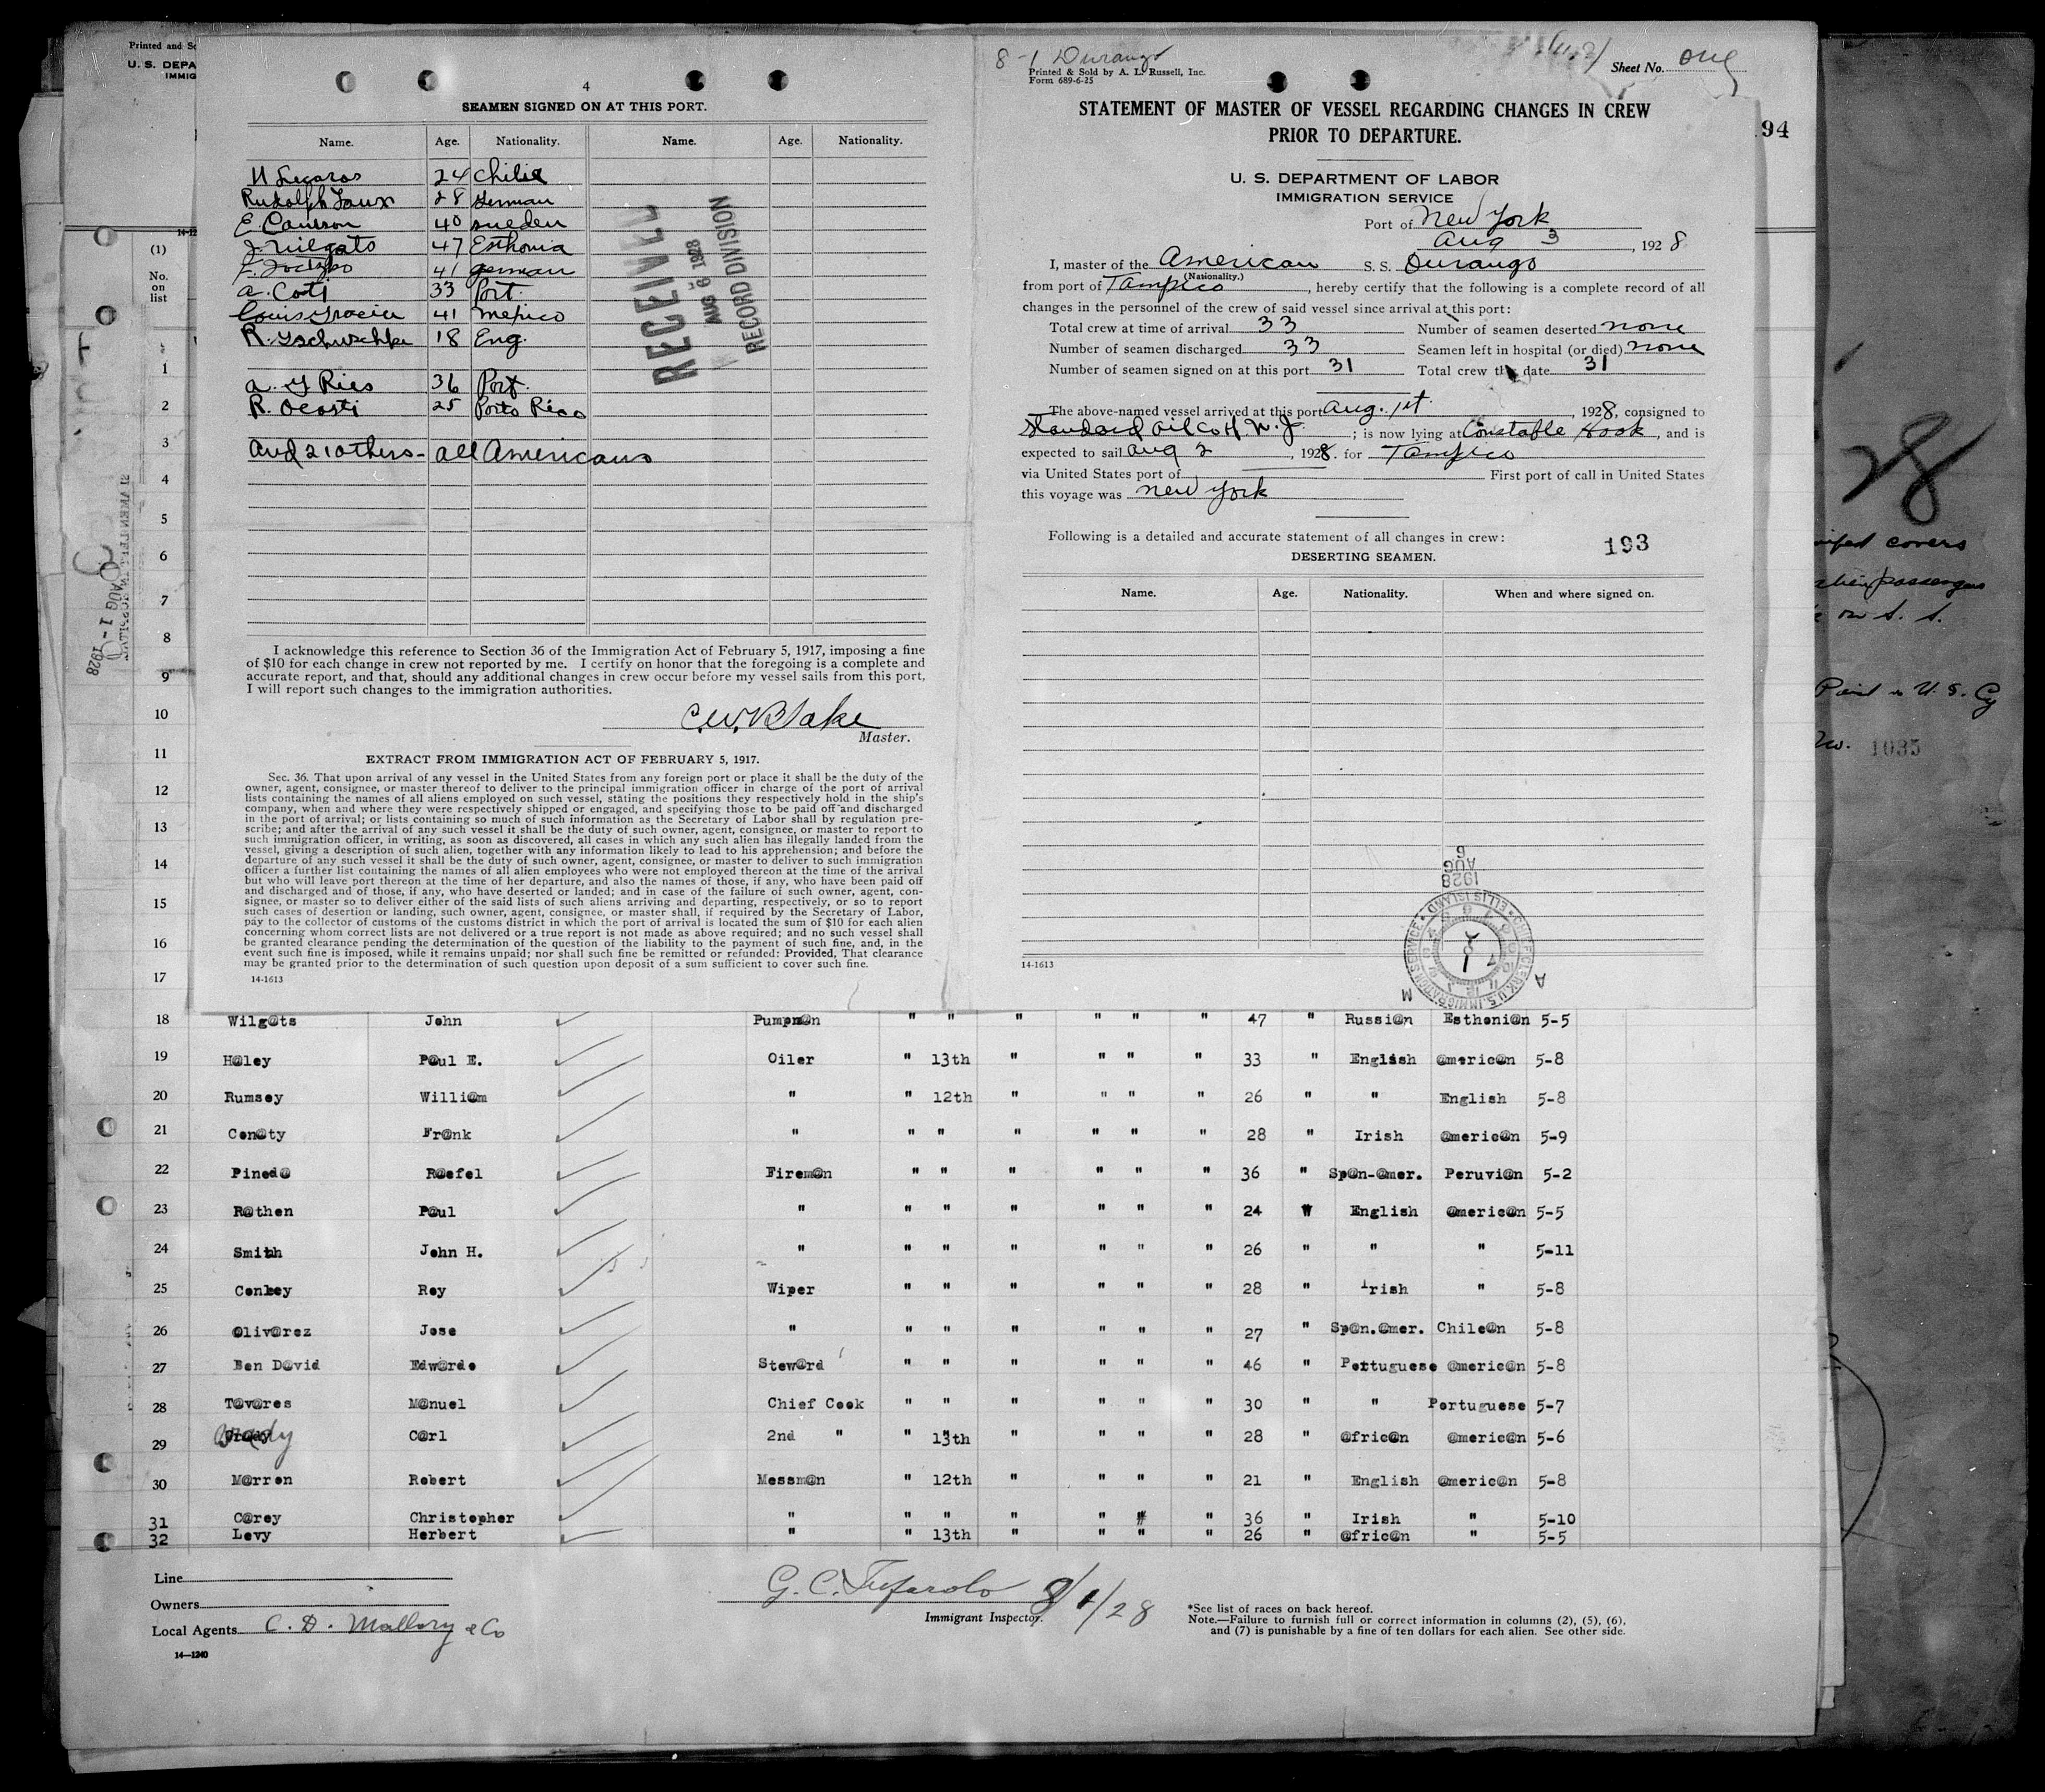 Printed and So
U. S. DEPA
IMMIG
4
SEAMEN SIGNED ON AT THIS PORT.
Name. Age. Nationality. Name. Age. Nationality.
24 Chilie
Rudolph 28 German
E. 40 sueden
J. Wilgats 47 Esthonia
41 german
a. Coti 33 Port.
Louis Gracier 41 Mexico
R. 18 Eng.
a. Y Ries 36 Port.
R. Ocasti 25 Porto Rico
and 21 others - all Americans
RECEIVED
AUG 6 1928
RECORD DIVISION
I acknowledge this reference to Section 36 of the Immigration Act of February 5, 1917, imposing a fine
of $10 for each change in crew not reported by me. I certify on honor that the foregoing is a complete and
accurate report, and that, should any additional changes in crew occur before my vessel sails from this port,
I will report such changes to the immigration authorities.
C. W. Blake
Master.
EXTRACT FROM IMMIGRATION ACT OF FEBRUARY 5, 1917.
Sec. 36. That upon arrival of any vessel in the United States from any foreign port or place it shall be the duty of the
owner, agent, consignee, or master thereof to deliver to the principal immigration officer in charge of the port of arrival
lists containing the names of all aliens employed on such vessel, stating the positions they respectively hold in the ship's
company, when and where they were respectively shipped or engaged, and specifying those to be paid off and discharged
in the port of arrival; or lists containing so much of such information as the Secretary of Labor shall by regulation pre-
scribe; and after the arrival of any such vessel it shall be the duty of such owner, agent, consignee, or master to report to
such immigration officer, in writing, as soon as discovered, all cases in which any such alien has illegally landed from the
vessel, giving a description of such alien, together with any information likely to lead to his apprehension; and before the
departure of any such vessel it shall be the duty of such owner, agent, consignee, or master to deliver to such immigration
officer a further list containing the names of all alien employees who were not employed thereon at the time of the arrival
but who will leave port thereon at the time of her departure, and also the names of those, if any, who have been paid off
and discharged and of those, if any, who have deserted or landed; and in case of the failure of such owner, agent, con-
signee, or master so to deliver either of the said lists of such aliens arriving and departing, respectively, or so to report
such cases of desertion or landing, such owner, agent, consignee, or master shall, if required by the Secretary of Labor,
pay to the collector of customs of the customs district in which the port of arrival is located the sum of $10 for each alien
concerning whom correct lists are not delivered or a true report is not made as above required; and no such vessel shall
be granted clearance pending the determination of the question of the liability to the payment of such fine, and, in the
event such fine is imposed, while it remains unpaid; nor shall such fine be remitted or refunded: Provided, That clearance
may be granted prior to the determination of such question upon deposit of a sum sufficient to cover such fine.
14-1613
8-1 Durango
Printed & Sold by A. L. Russell, Inc.
Form 689-6-25
Sheet No. one
STATEMENT OF MASTER OF VESSEL REGARDING CHANGES IN CREW
PRIOR TO DEPARTURE.
94
U. S. DEPARTMENT OF LABOR
IMMIGRATION SERVICE
Port of New York
Aug 3, 1928
I, master of the American S. S. Durango
(Nationality.)
from port of Tampico, hereby certify that the following is a complete record of all
changes in the personnel of the crew of said vessel since arrival at this port:
Total crew at time of arrival 33 Number of seamen deserted none
Number of seamen discharged 33 Seamen left in hospital (or died) none
Number of seamen signed on at this port 31 Total crew this date 31
The above-named vessel arrived at this port Aug. 1st, 1928, consigned to
Standard Oil Co of N. J.; is now lying at Constable Hook, and is
expected to sail Aug 2, 1928. for Tampico
via United States port of First port of call in United States
this voyage was New York
Following is a detailed and accurate statement of all changes in crew:
193
DESERTING SEAMEN.
Name. Age. Nationality. When and where signed on.
1928
AUG
6
CHIEF CLERK, U.S. IMMIGRATION SERVICE
ELLIS ISLAND
A M
14-1613
(1)
No.
on
list
1
2
3
4
5
6
7
8
9
10
11
12
13
14
15
16
17
AUG 1-1928
28
covers
passengers
on S. S.
Paid in U. S. Cy
No. 1035
18 Wilg@ts John Pump@n " " " " " " 47 " Russi@n Esthoni@n 5-5
19 H@ley P@ul E. Oiler " 13th " " " " 33 " English @meric@n 5-8
20 Rumsey Willi@m " " 12th " " " " 26 " " English 5-8
21 Con@ty Fr@nk " " " " " " " 28 " Irish @meric@n 5-9
22 Pined@ R@efel Firem@n " " " " " " 36 " Sp@n-@mer. Peruvi@n 5-2
23 R@then P@ul " " " " " " " 24 " English @meric@n 5-5
24 Smith John H. " " " " " " " 26 " " " 5-11
25 Conkey Roy Wiper " " " " " " 28 " Irish " 5-8
26 Oliv@rez Jose " " " " " " " 27 " Sp@n.@mer. Chile@n 5-8
27 Ben D@vid Edw@rdo Stew@rd " " " " " " 46 " Portuguese @meric@n 5-8
28 T@v@res M@nuel Chief Cook " " " " " " 30 " " Portuguese 5-7
29 Brady C@rl 2nd " " 13th " " " " 28 " @fric@n @meric@n 5-6
30 M@rron Robert Messm@n " 12th " " " " 21 " English @meric@n 5-8
31 C@rey Christopher " " " " " " " 36 " Irish " 5-10
32 Levy Herbert " " 13th " " " " 26 " @fric@n " 5-5
Line
Owners
Local Agents C. D. Mallory & Co
14-1240
G. C. Tufarolo 8/1/28
Immigrant Inspector.
*See list of races on back hereof.
Note.—Failure to furnish full or correct information in columns (2), (5), (6),
and (7) is punishable by a fine of ten dollars for each alien. See other side.